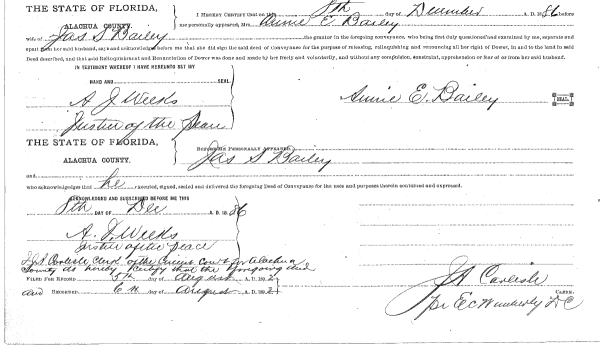 THE STATE OF FLORIDA,
ALACHUA COUNTY.
I HEREBY CERTIFY That on this 8th day of December A. D. 1886 before
me personally appeared, Mrs. Annie E. Bailey
wife of Jas S Bailey the grantor in the foregoing conveyance, who being first duly questioned and examined by me, separate and
apart from her said husband, says and acknowledges before me that she did sign the said deed of Conveyance for the purpose of releasing, relinquishing and renouncing all her right of Dower, in and to the land in said
Deed described, and that said Relinquishment and Renunciation of Dower was done and made by her freely and voluntarily, and without any compulsion, constraint, apprehension or fear of or from her said husband.
IN TESTIMONY WHEREOF I HAVE HEREUNTO SET MY
HAND AND SEAL
A J Weeks
Justice of the Peace
Annie E. Bailey
SEAL.
THE STATE OF FLORIDA,
ALACHUA COUNTY.
BEFORE ME PERSONALLY APPEARED
Jas S Bailey
and
who acknowledges that he executed, signed, sealed and delivered the foregoing Deed of Conveyance for the uses and purposes therein contained and expressed.
ACKNOWLEDGED AND SUBSCRIBED BEFORE ME THIS
8th DAY OF Dec A. D. 1886
A. J. Weeks
Justice of the Peace
I J A Carlisle Clerk of the Circuit Court for Alachua
County do hereby certify that the foregoing deed
FILED FOR RECORD 5th day of August A. D. 1892
and RECORDED 6th day of August A. D. 1892
J A Carlisle
CLERK.
pr E C Wimberly DC